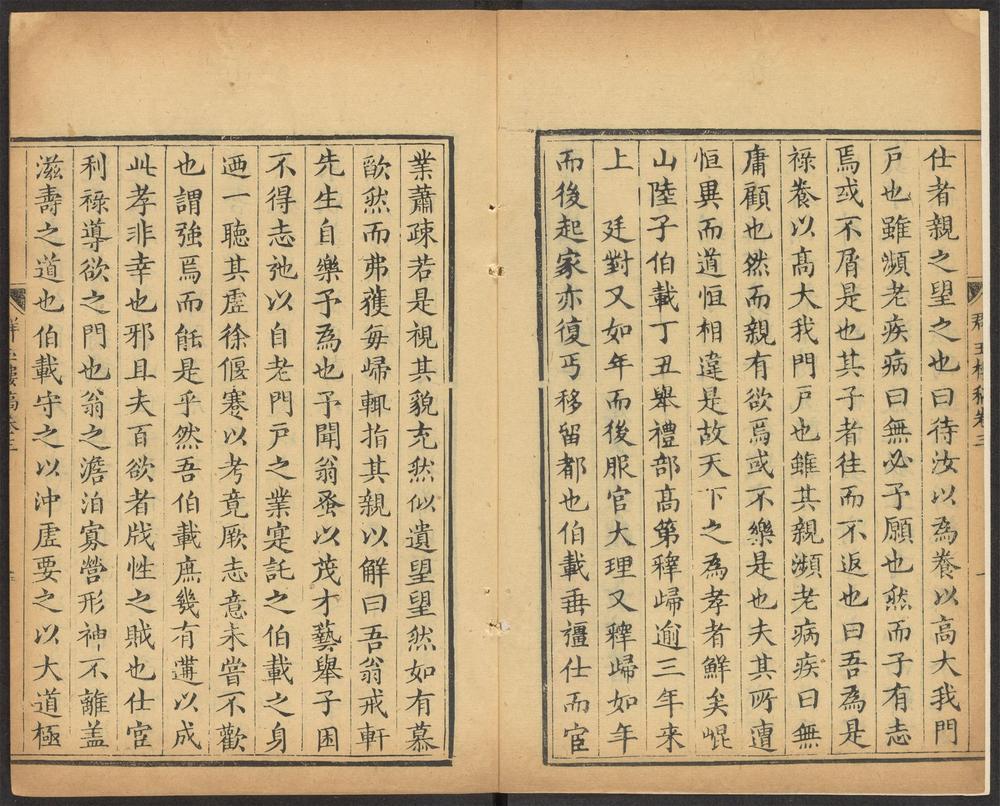 仕者親之望之也曰待汝以為養以高大我門
戶也雖瀕老疾病曰無必予願也然而子有志
焉或不屑是也其子者往而不返也曰吾為是
祿養以髙大我門戶也雖其親瀕老病疾曰無
庸顧也然而親有欲焉或不樂是也夫其所遭
恒異而道恒相違是故天下之為孝者鮮矣崐
山陸子伯載丁丑舉禮部高第釋歸逾三年来
上　廷對又如年而後服官大理又釋歸如年
而後起家亦復丐移留都也伯載垂彊仕而宦
羣玉樓稿卷三
一
業蕭疎若是視其貌充然似遺望望然如有慕
歉然而弗獲毎歸輒指其親以解曰吾翁戒軒
先生自樂予為也予聞翁蚤以茂才藝舉子困
不得志弛以自老門戸之業寔託之伯載之身
迺一聽其虛徐偃蹇以考竟厥志意未嘗不歡
也謂強焉而能是乎然吾伯載庶幾有遘以成
此孝非幸也邪且夫百欲者戕性之賊也仕宦
利祿導欲之門也翁之澹泊寡營形神不離盖
滋壽之道也伯載守之以沖虛要之以大道極
羣玉樓稿卷三